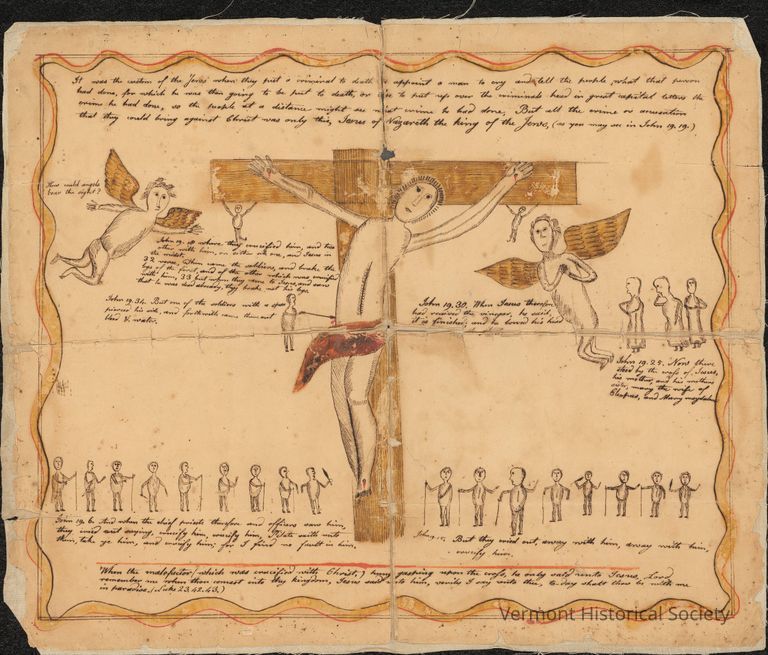 It was the custom of the Jews when they put a criminal to death to appoint a man to cry and tell the people what that person
had done, for which he was then going to be put to death, or else to put up over the criminals head in great capital letters the
crime he had done, so the people at a distance might see what crime he had done, But all the crime or accusation
that they could bring against Christ was only this, Jesus of Nazareth the king of the Jews, (as you may see in John 19. 19.)
How could angels
bear the sight?
John 19. 18 where they crucified him, and two
other with him, on either side one, and Jesus in
the midst.
32 vers. Then came the soldiers, and brake the
legs of the first, and of the other which was crucified
with him, 33 but when they came to Jesus, and saw
that he was dead already, they brake not his legs.
John 19. 34. But one of the soldiers with a spear
pierced his side, and forthwith came there out
blood & water.
John 19. 30. When Jesus therefore
had received the vinegar, he said,
it is finished; and he bowed his head
John 19. 25. Now there
stood by the cross of Jesus,
his mother, and his mothers
sister, mary the wife of
Cleophas, and Mary magdalene
John 19. 6. And when the chief priests therefore and officers saw him,
they cried out saying, crucify him, crucify him, Pilate saith unto
them, take ye him, and crucify him, for I find no fault in him,
John 19. 15. But they cried out, away with him, away with him,
crucify him.
When the malefactor, which was crucified with Christ,) hung gasping upon the cross, he only said unto Jesus, Lord
remember me when thou comest into thy kingdom, Jesus said unto him, verily I say unto thee, to day shalt thou be with me
in paradise, (Luke 23. 42. 43.)
Vermont Historical Society